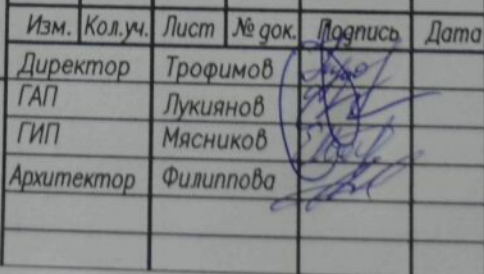 Изм. Кол.уч. Лист № док. Подпись Дата
Директор Трофимов
ГАП Лукиянов
ГИП Мясников
Архитектор Филиппова